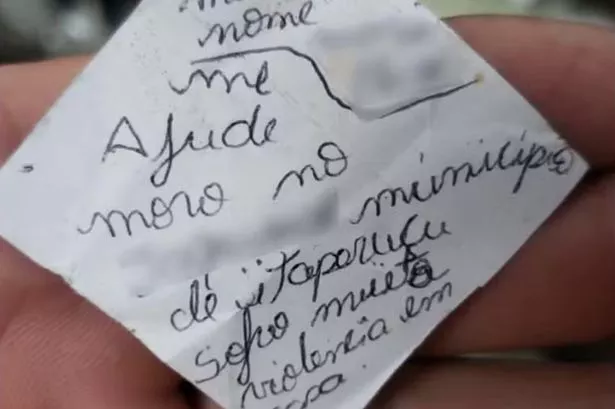 nome
me
Ajude
moro no
município
de itaparucu
sofro muita
violencia em